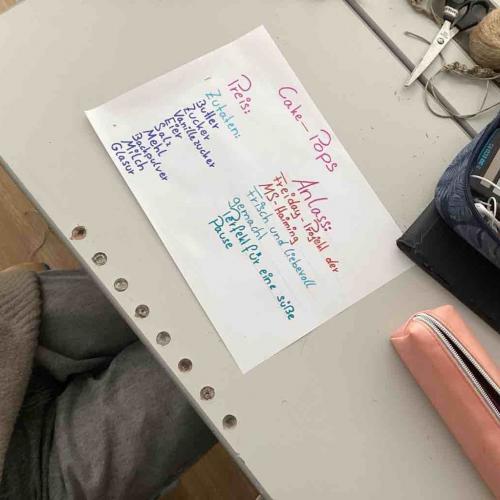 Cake-Pops
Preis:
Zutaten:
Butter
Zucker
Vanillezucker
Eier
Salz
Mehl
Backpulver
Milch
Glasur
Anlass:
Freiday-Projekt der
MS-Haiming
Frisch und liebevoll
gemacht
Perfekt für eine süße
Pause